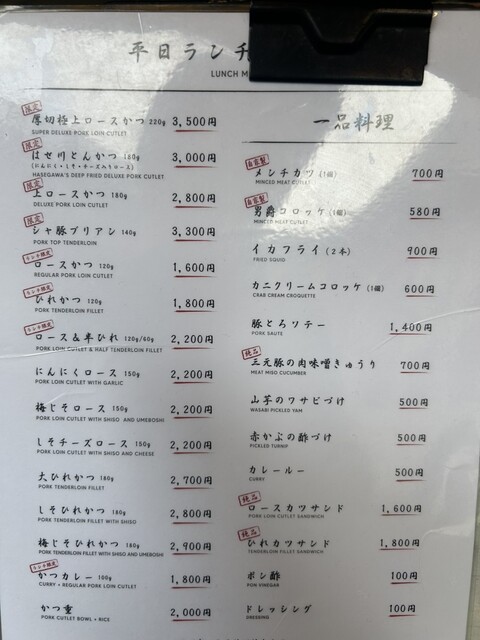 平日ランチ
LUNCH M
限定
厚切極上ロースかつ 220g 3,500円
SUPER DELUXE PORK LOIN CUTLET
限定
はせ川とんかつ 180g 3,000円
(にんにく・しそ・チーズ入りロース)
HASEGAWA'S DEEP FRIED DELUXE PORK CUTLET
限定
上ロースかつ 180g 2,800円
DELUXE PORK LOIN CUTLET
限定
シャ豚ブリアン 140g 3,300円
PORK TOP TENDERLOIN
ランチ限定
ロースかつ 120g 1,600円
REGULAR PORK LOIN CUTLET
ランチ限定
ひれかつ 120g 1,800円
PORK TENDERLOIN FILLET
ランチ限定
ロース&半ひれ 120g/60g 2,200円
PORK LOIN CUTLET & HALF TENDERLOIN FILLET
にんにくロース 150g 2,200円
PORK LOIN CUTLET WITH GARLIC
梅じそロース 150g 2,200円
PORK LOIN CUTLET WITH SHISO AND UMEBOSHI
しそチーズロース 150g 2,200円
PORK LOIN CUTLET WITH SHISO AND CHEESE
大ひれかつ 180g 2,700円
PORK TENDERLOIN FILLET
しそひれかつ 180g 2,800円
PORK TENDERLOIN FILLET WITH SHISO
梅じそひれかつ 180g 2,900円
PORK TENDERLOIN FILLET WITH SHISO AND UMEBOSHI
ランチ限定
かつカレー 100g 1,800円
CURRY + REGULAR PORK LOIN CUTLET
かつ重 2,000円
PORK CUTLET BOWL + RICE
一品料理
自家製
メンチカツ (1個) 700円
MINCED MEAT CUTLET
自家製
男爵コロッケ (1個) 580円
MINCED MEAT CUTLET
イカフライ (2本) 900円
FRIED SQUID
カニクリームコロッケ (1個) 600円
CRAB CREAM CROQUETTE
豚とろソテー 1,400円
PORK SAUTE
絶品
三元豚の肉味噌きゅうり 700円
MEAT MISO CUCUMBER
山芋のワサビづけ 500円
WASABI PICKLED YAM
赤かぶの酢づけ 500円
PICKLED TURNIP
カレールー 500円
CURRY
絶品
ロースカツサンド 1,600円
PORK LOIN CUTLET SANDWICH
絶品
ひれカツサンド 1,800円
TENDERLOIN FILLET SANDWICH
ポン酢 100円
PON VINEGAR
ドレッシング 100円
DRESSING